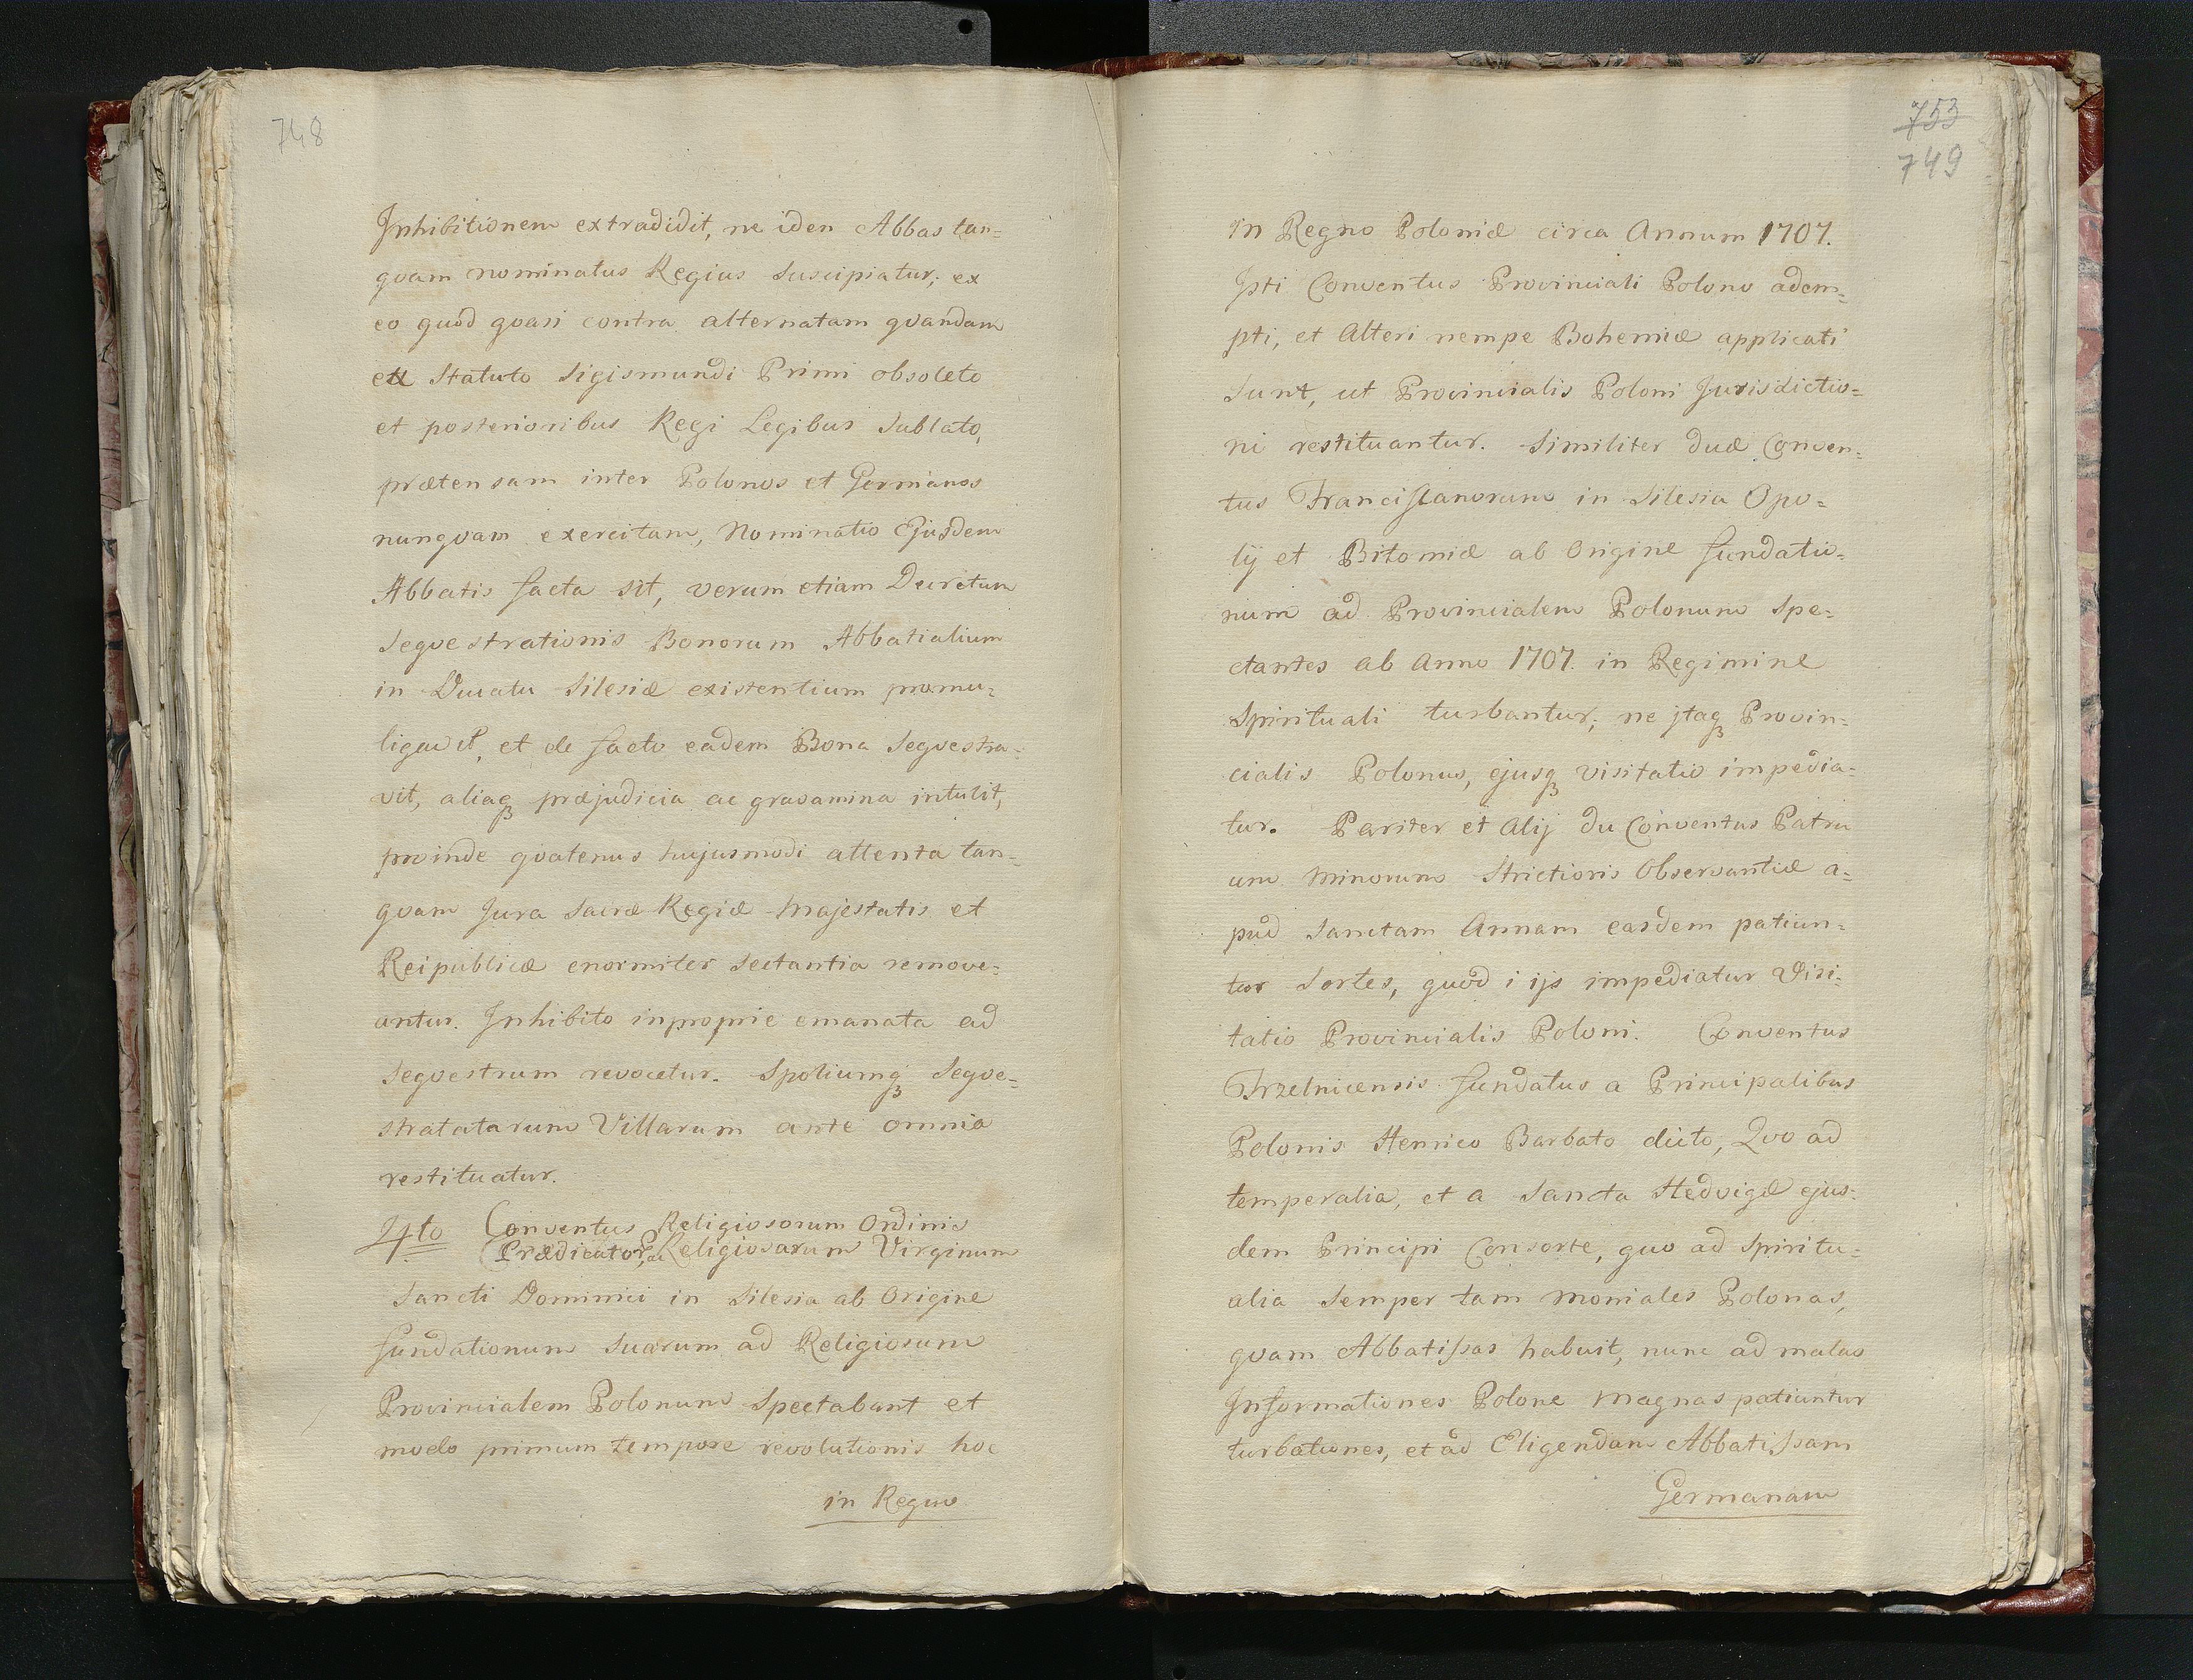 748
Inhibitionem extradidit, ne iden Abbas tan=
qvam nominatus Regius suscipiatur; ex
eo quod qvasi contra alternatam qvandam
Statuto Sigismundi Primi obsoleto
et posterioribus Regi Legibus sublato,
prætensam inter Polonos et Germanos
nunqvam exercitam, Nominatio Ejusdem
Abbatis facta sit, verum etiam Decretum
seqvestrationis Bonorum Abbatialium
in Ducatu Silesiæ existentium promu=
ligavit, et de facto eadem Bona seqvestra=
vit, aliaqꝫ præjudicia ac gravamina intulit,
proinde qvatenus hujusmodi attenta tan=
qvam Jura Sacræ Regiæ Majestatis et
Reipublicæ enormiter sectantia remove=
antur. Inhibito inproprie emanata ad
Seqvestrum revocetur. Spoliumqꝫ Seqve=
stratatarum Villarum ante omnia
restituatur.
4to Conventus Religiosorum Ordinis
Prædicator, ac Religiosarum Virginum
Sancti Dominici in Silesia ab Origine
fundationum suarum ad Religiosum
Provincialem Polonum Spectabant et
modo primum tempore revolutionis hoc
in Regno
753
749
in Regno Poloniæ circa Annum 1707.
Ipti Conventus Provinciali Polono adem=
pti, et Alteri nempe Bohemiæ applicati
sunt, ut Provincialis Poloni Jurisdictio=
ni restituantur. Similiter duæ Conven=
tus Franciscanorum in Silesia Opo=
lij et Bitomiæ ab Origine fundatio=
num ad Provincialem Polonum Spe=
ctantes ab Anno 1707. in Regimine
Spirituali turbantur; ne jtaqꝫ Provin=
cialis Polonus, ejusqꝫ visitatio impedia=
tur. Pariter et Alij du Conventus Patru
um Minorum Strictioris Observantiæ a=
pud Sanctam Annam easdem patiun=
tur Sortes, quod i ijs impediatur Visi=
tatio Provincialis Poloni. Conventus
Trzelnicensis fundatus a Principalibus
Polonis Henrico Barbato dicto, Qvo ad
temperalia, et a Sancta Hedvigæ ejus=
dem Principi Consorte, quo ad Spiritu=
alia Semper tam Moniales Polonas,
qvam Abbatissas habuit, nunc ad malas
Informationes Polone Magnas patiuntur
turbationes, et ad Eligendam Abbatissam
Germanam